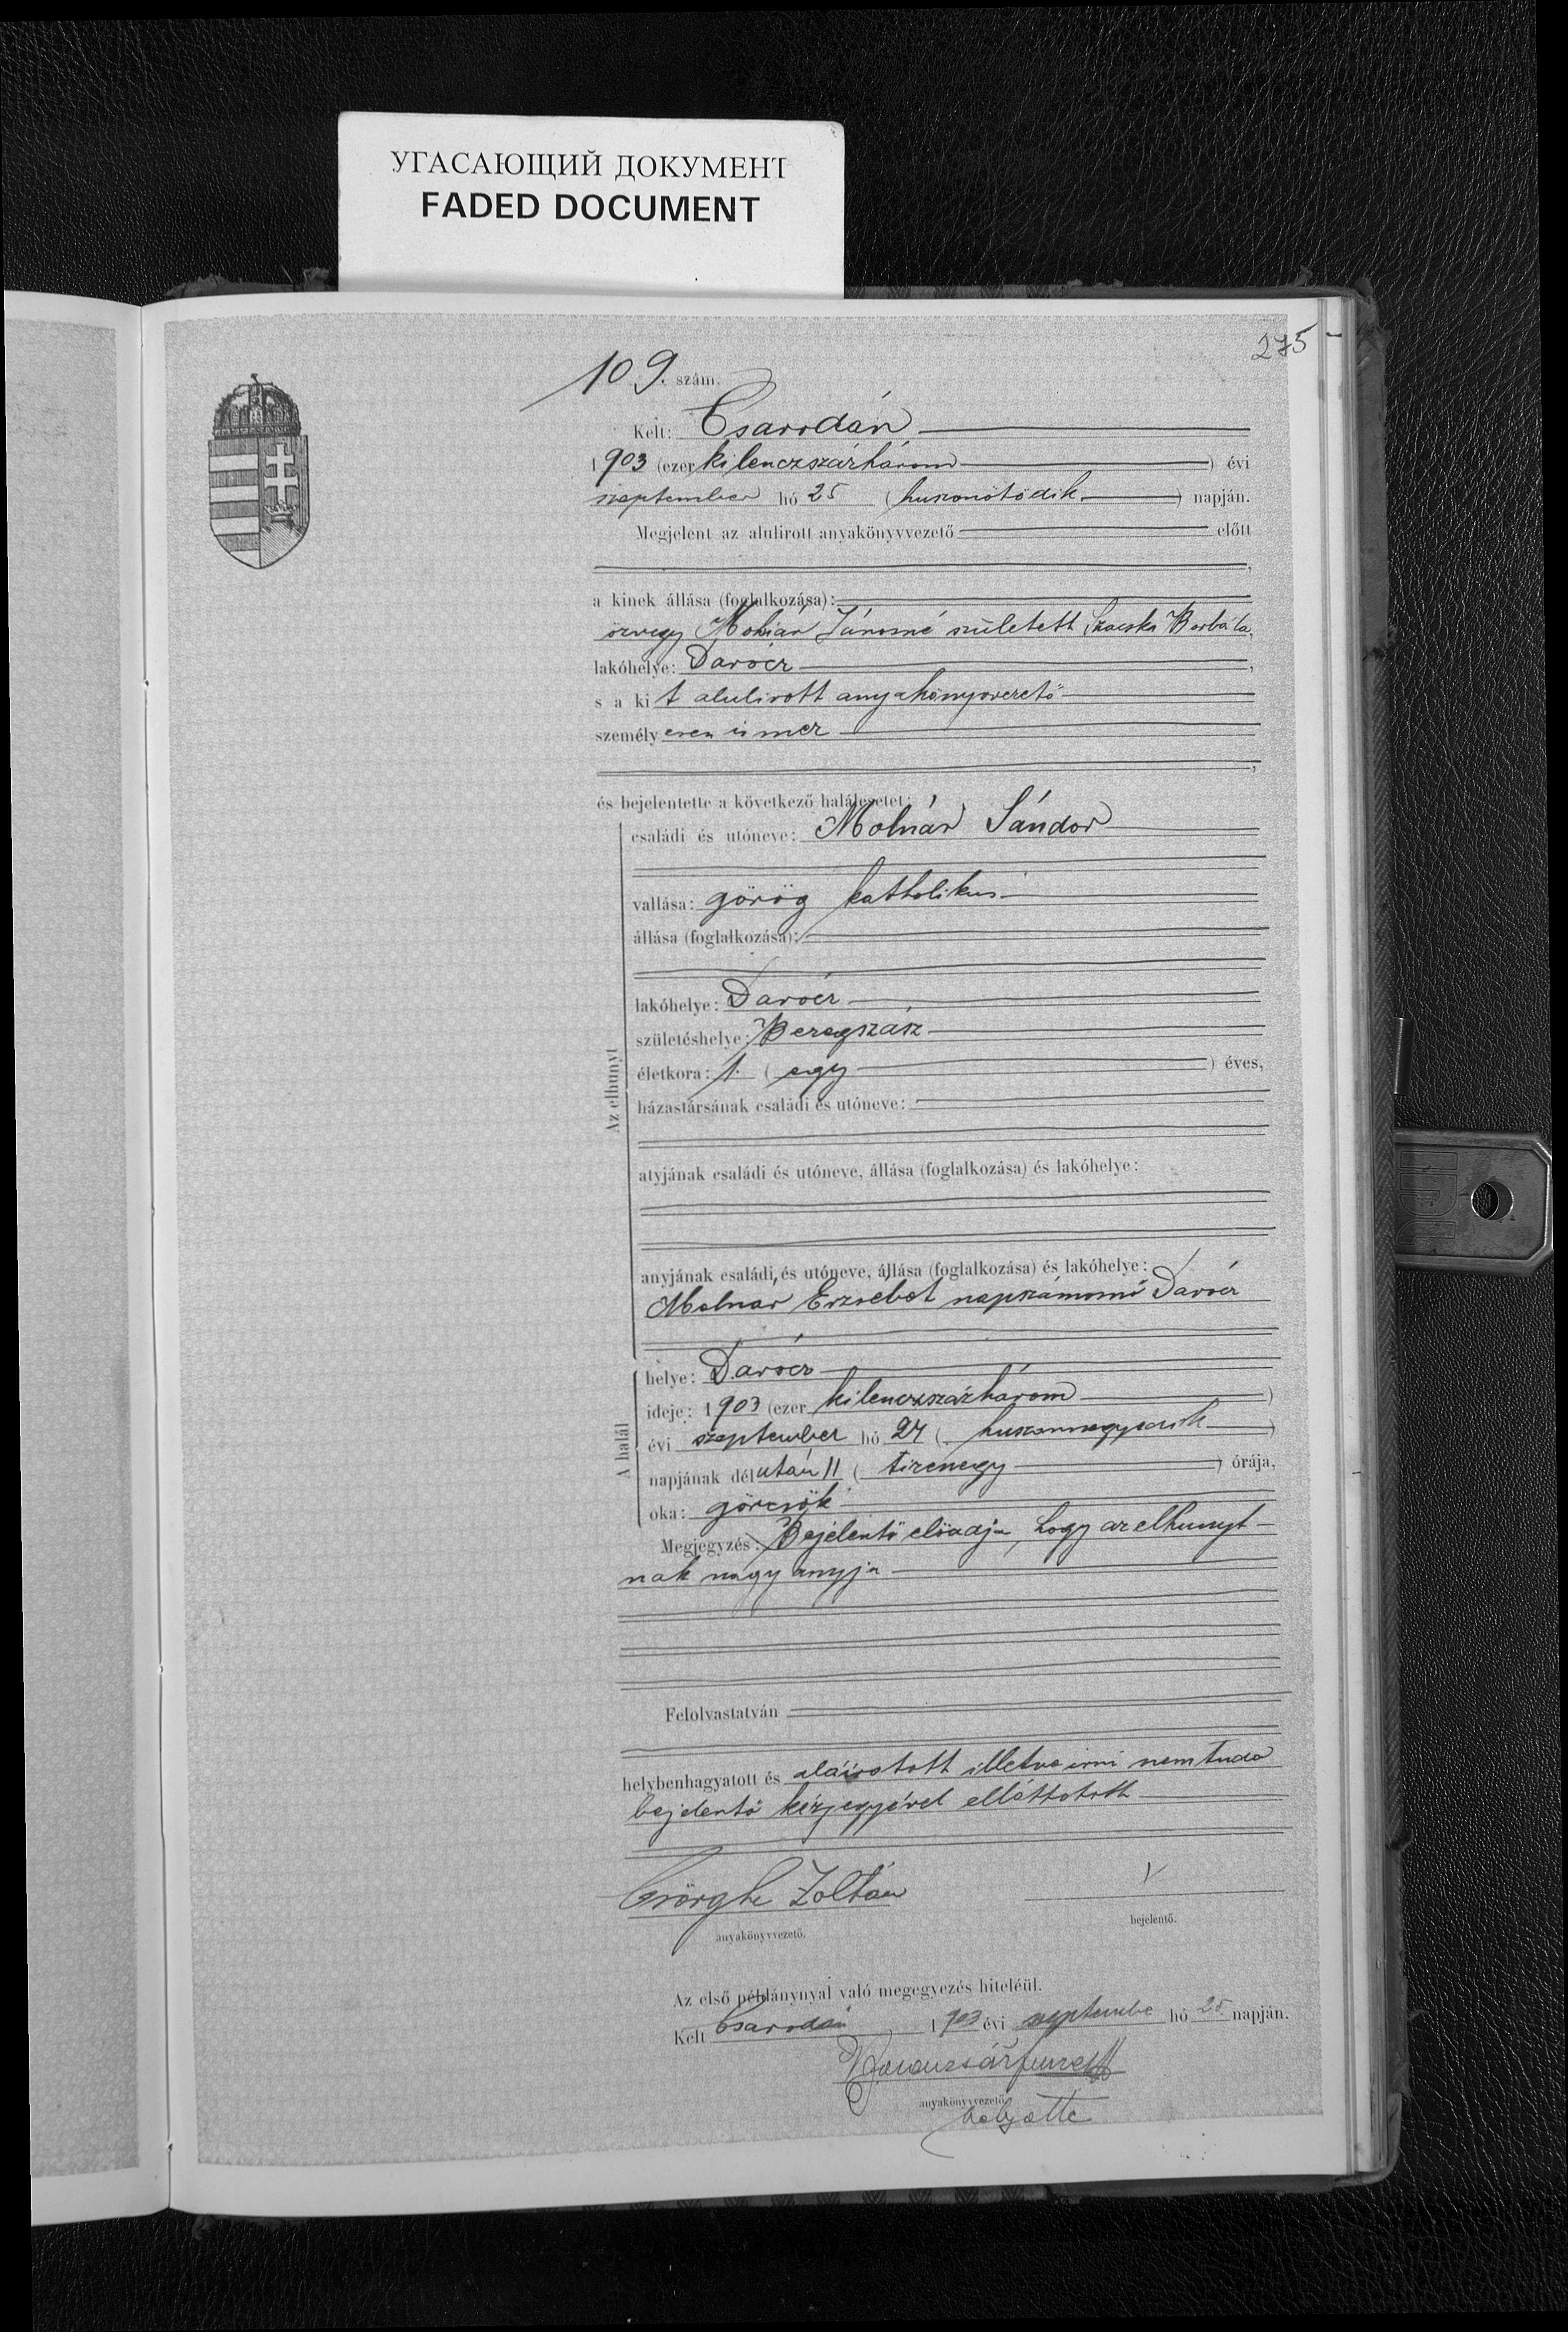 УГАСАЮЩИЙ ДОКУМЕНТ
FADED DOCUMENT
275
109. szám.
Kelt: Csarodán
1903 (ezer kilenczszázhárom) évi
szeptember hó 25 (huszonötödik) napján.
Megjelent az alulirott anyakönyvvezető előtt
a kinek állása (foglalkozása):
özvegy Molnár Jánosné született Szacska Borbála,
lakóhelye: Darócz,
s a kit alulirott anyakönyvvezető
személyesen ismer
és bejelentette a következő halálesetet:
Az elhunyt
családi és utóneve: Molnár Sándor
vallása: görög katholikus
állása (foglalkozása):
lakóhelye: Darócz
születéshelye: Beregszász
életkora: 1. (egy) éves,
házastársának családi és utóneve:
atyjának családi és utóneve, állása (foglalkozása) és lakóhelye:
anyjának családi és utóneve, állása (foglalkozása) és lakóhelye:
Molnár Erzsébet napszámosnő Darócz
A halál
helye: Darócz
ideje: 1903 (ezer kilenczszázhárom)
évi szeptember hó 24 (huszonnegyedik)
napjának délután 11 (tizenegy) órája,
oka: görcsök
Megjegyzés: Bejelentő előadja, hogy az elhunyt-
nak nagy anyja
Felolvastatván
helybenhagyatott és aláiratott illetve irni nem tudó
bejelentő kézjegyével elláttatott
Csörghe Zoltán
anyakönyvvezető.
bejelentő.
Az első példánynyal való megegyezés hiteléül.
Kelt Csarodán 1903 évi szeptembe hó 25. napján.
anyakönyvvezető
helyette